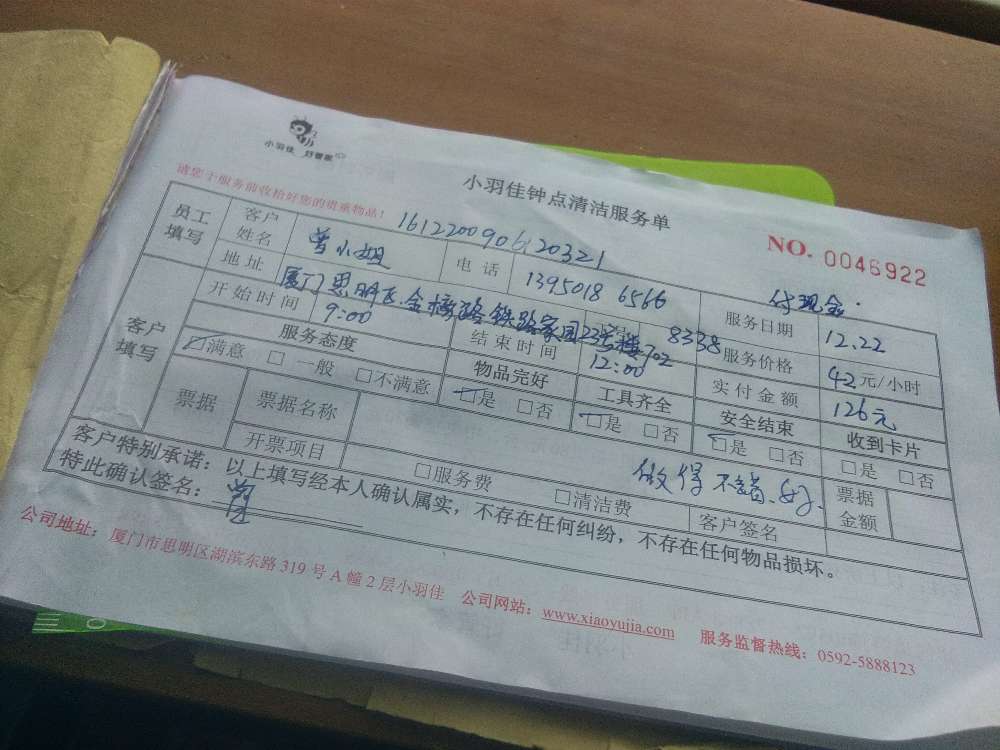 小羽佳 好管家
小羽佳钟点清洁服务单
请您于服务前收拾好您的贵重物品！
NO. 0046922
1612200906120321
付现金.
员工填写 客户姓名 曾小姐 电话 1395018 6566 服务日期 12.22
地址 厦门思明区.金榜路铁路家园23号楼702 8338 服务价格 42元/小时
客户填写 开始时间 9:00 结束时间 12:00 实付金额 126元
服务态度 物品完好 工具齐全 安全结束 收到卡片
☑满意 □一般 □不满意 ☑是 □否 ☑是 □否 ☑是 □否 □是 □否
票据 票据名称 做得不错.好. 票据金额
开票项目 □服务费 □清洁费 客户签名
客户特别承诺：以上填写经本人确认属实，不存在任何纠纷，不存在任何物品损坏。
特此确认签名：曾
公司地址：厦门市思明区湖滨东路 319 号 A 幢 2 层小羽佳 公司网站：www.xiaoyujia.com 服务监督热线：0592-5888123